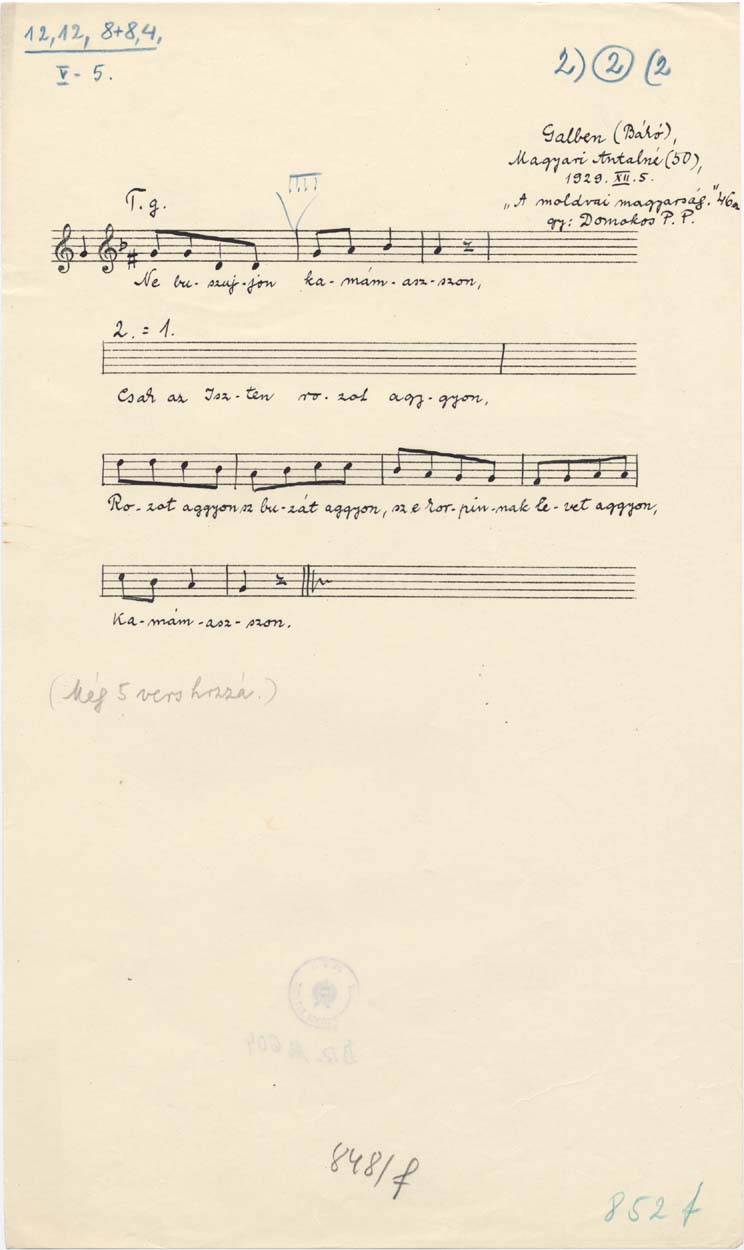 12,12, 8+8,4,
V - 5.
2) 2 (2
Galben (Bákó),
Magyari Antalné (50),
1929. XII. 5.
„A moldvai magyarság." 46a
gy: Domokos P. P.
T. g.
Ne bu- szuj- jon ka- mám- asz- szon,
2. = 1.
Csak az Isz- ten ro- zat agy- gyon,
Ro- zat aggyon sz bu- zát aggyon, sz e kor- pin- nak le- vet aggyon,
Ka- mám- asz- szon.
(Még 5 vers hozzá.)
848/f
852 f